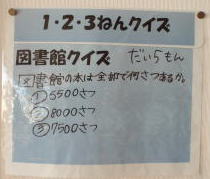 1・2・3ねんクイズ
図書館クイズ だいらもん
図書館の本は全部で何さつあるか。
①6500さつ
②8000さつ
③7500さつ